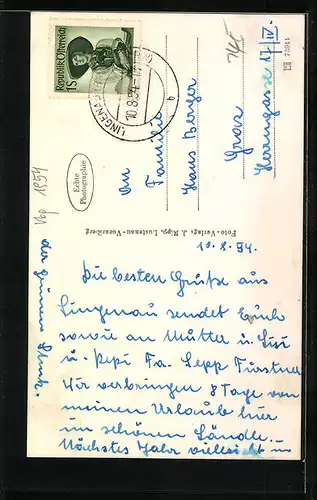 Republik Österreich
1S
LINGENAU
10.8.54
b
An
Familie
Hans Berger
Graz
Herrengasse 17/IV.
LH 73941
Echte
Photographie
Foto-Verlag: J. Mipp, Lustenau-Vorarlberg
Vbg 1954
10.8.54.
Die besten Grüße aus
Lingenau sendet Euch
sowie an Mutter u.
u. Pepi Fa. Sepp Fürstner
Wir verbringen 8 Tage von
meinen Urlaub hier
im schönen Ländle.
Nächstes Jahr vielleicht in
der grünen